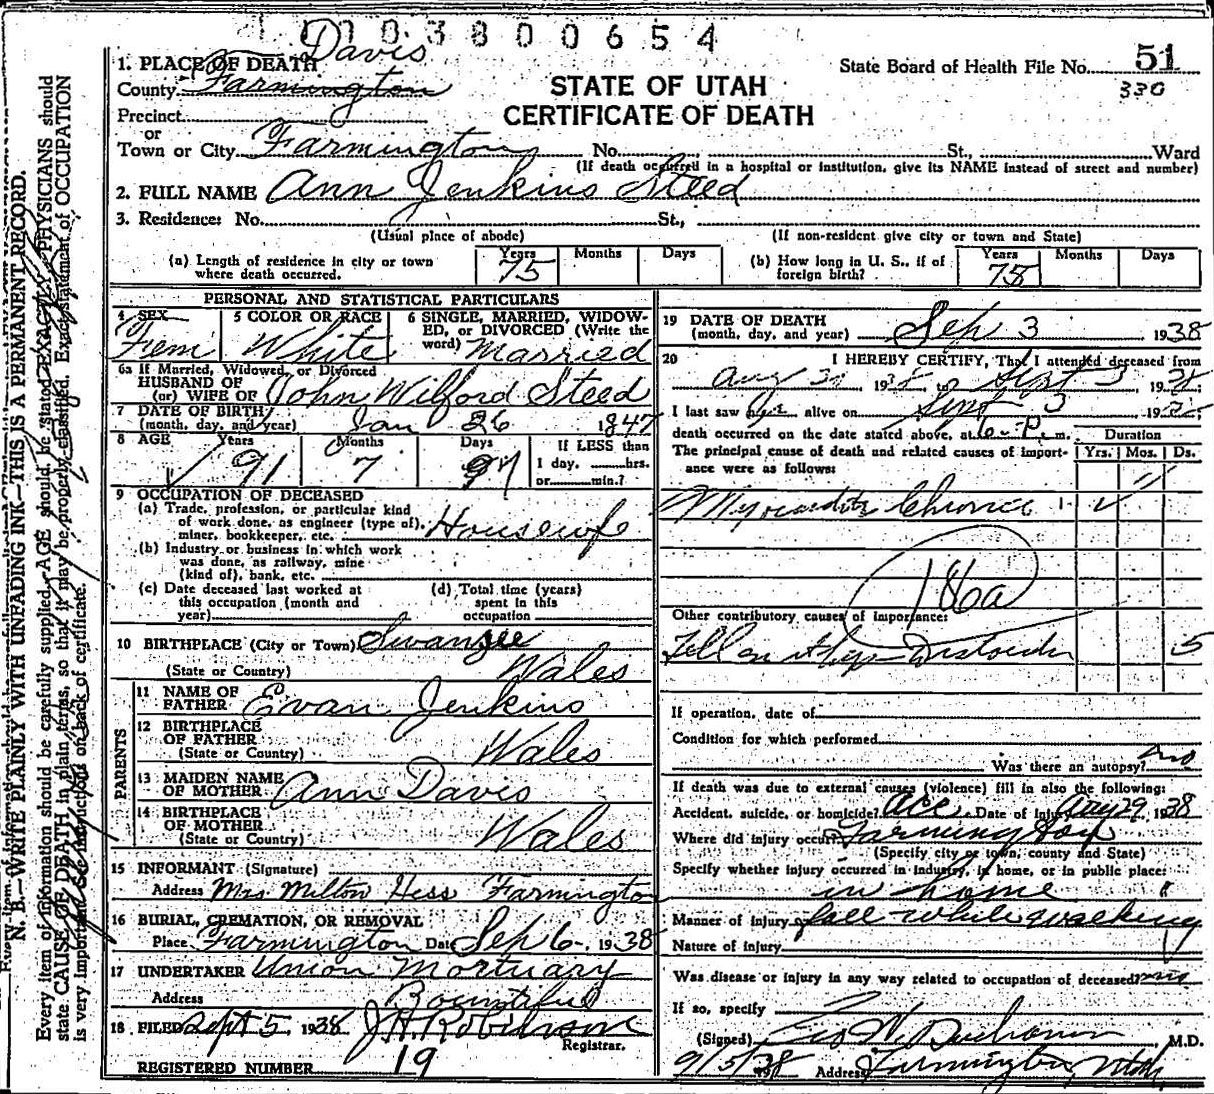 1003800654
Davis
1. PLACE OF DEATH
County Farmington
State Board of Health File No. 51
330
STATE OF UTAH
CERTIFICATE OF DEATH
Precinct
or
Town or City Farmington No. St., Ward
(If death occurred in a hospital or institution, give its NAME instead of street and number)
2. FULL NAME Ann Jenkins Steed
3. Residence: No. St.,
(Usual place of abode) (If non-resident give city or town and State)
(a) Length of residence in city or town where death occurred. Years 75 Months Days
(b) How long in U. S., if of foreign birth? Years 75 Months Days
PERSONAL AND STATISTICAL PARTICULARS
4 SEX Fem
5 COLOR OR RACE White
6 SINGLE, MARRIED, WIDOWED, or DIVORCED (Write the word) Married
6a If Married, Widowed, or Divorced
HUSBAND OF
(or) WIFE OF John Wilford Steed
7 DATE OF BIRTH
(month, day, and year) Jan 26 1847
8 AGE Years 91 Months 7 Days
If LESS than
1 day, hrs.
or min.?
9 OCCUPATION OF DECEASED
(a) Trade, profession, or particular kind
of work done, as engineer (type of),
miner, bookkeeper, etc. Housewife
(b) Industry or business in which work
was done, as railway, mine
(kind of), bank, etc.
(c) Date deceased last worked at
this occupation (month and
year)
(d) Total time (years)
spent in this
occupation
10 BIRTHPLACE (City or Town) Swansee
(State or Country) Wales
PARENTS
11 NAME OF
FATHER Evan Jenkins
12 BIRTHPLACE
OF FATHER
(State or Country) Wales
13 MAIDEN NAME
OF MOTHER Ann Davis
14 BIRTHPLACE
OF MOTHER
(State or Country) Wales
15 INFORMANT (Signature)
Address Mrs Milton Hess Farmington
16 BURIAL, CREMATION, OR REMOVAL
Place Farmington Date Sep 6 1938
17 UNDERTAKER Union Mortuary
Address Bountiful
18 FILED Sept 5 1938 J H Robinson
Registrar.
REGISTERED NUMBER 19
19 DATE OF DEATH
(month, day, and year) Sep 3 1938
20 I HEREBY CERTIFY, That I attended deceased from
Aug 30 1938 to Sept 3 1938
I last saw her alive on Sept 3 1938
death occurred on the date stated above, at 6 P. m.
Duration
The principal cause of death and related causes of importance were as follows: Yrs. Mos. Ds.
Myocarditis Chronic
186a
Other contributory causes of importance:
Fell 5
If operation, date of
Condition for which performed
Was there an autopsy? no
If death was due to external causes (violence) fill in also the following:
Accident, suicide, or homicide? acc Date of injury Aug 29 1938
Where did injury occur? Farmington
(Specify city or town, county and State)
Specify whether injury occurred in industry, in home, or in public place:
in home
Manner of injury fall while walking
Nature of injury
Was disease or injury in any way related to occupation of deceased? no
If so, specify
(Signed) Geo W Buchanan M.D.
9/5/38 Address Farmington, Utah
N. B.—WRITE PLAINLY WITH UNFADING INK—THIS IS A PERMANENT RECORD.
Every item of information should be carefully supplied. AGE should be stated EXACTLY. PHYSICIANS should
state CAUSE OF DEATH in plain terms, so that it may be properly classified. Exact statement of OCCUPATION
is very important. See instructions on back of certificate.